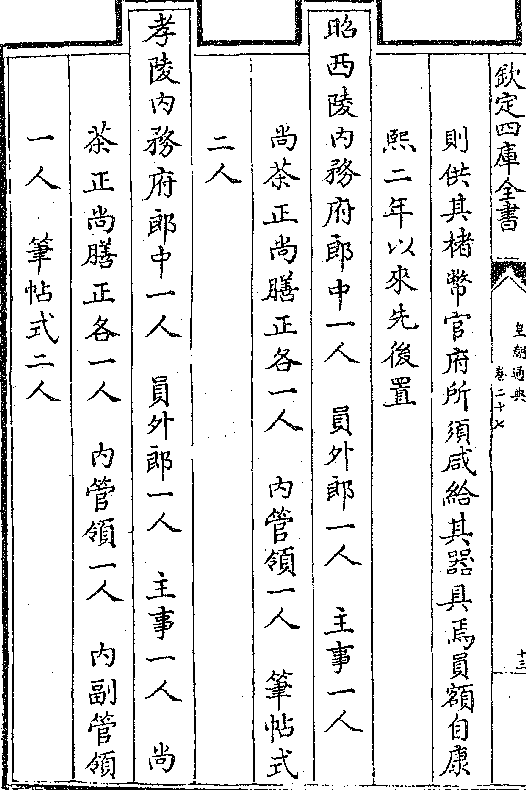 欽定四庫全書
皇朝通典
卷二十七
十三
則供其楮幣官府所須咸給其器具焉員額自康
熙二年以來先後置
昭西陵內務府郎中一人 員外郎一人 主事一人
尚茶正尚膳正各一人 內管領一人 筆帖式
二人
孝陵內務府郎中一人 員外郎一人 主事一人 尚
茶正尚膳正各一人 內管領一人 內副管領
一人 筆帖式二人